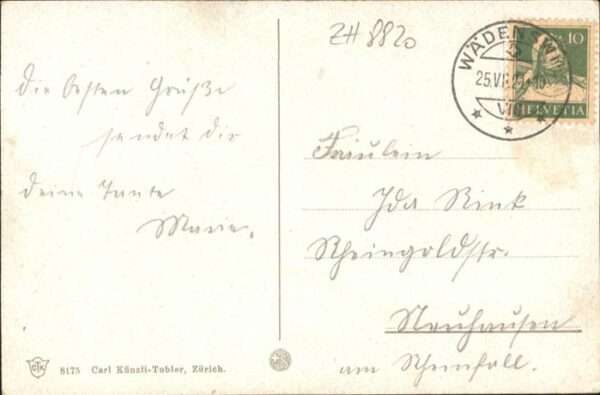 ZH 8820
WÄDENSWIL
25.VI.2
VII
10
HELVETIA
Die besten Grüße
sendet dir
deine Tante
Marie.
Fräulein
Ida Rink
Rheingoldstr.
Neuhausen
am Rheinfall.
8175 Carl Künzli-Tobler, Zürich.